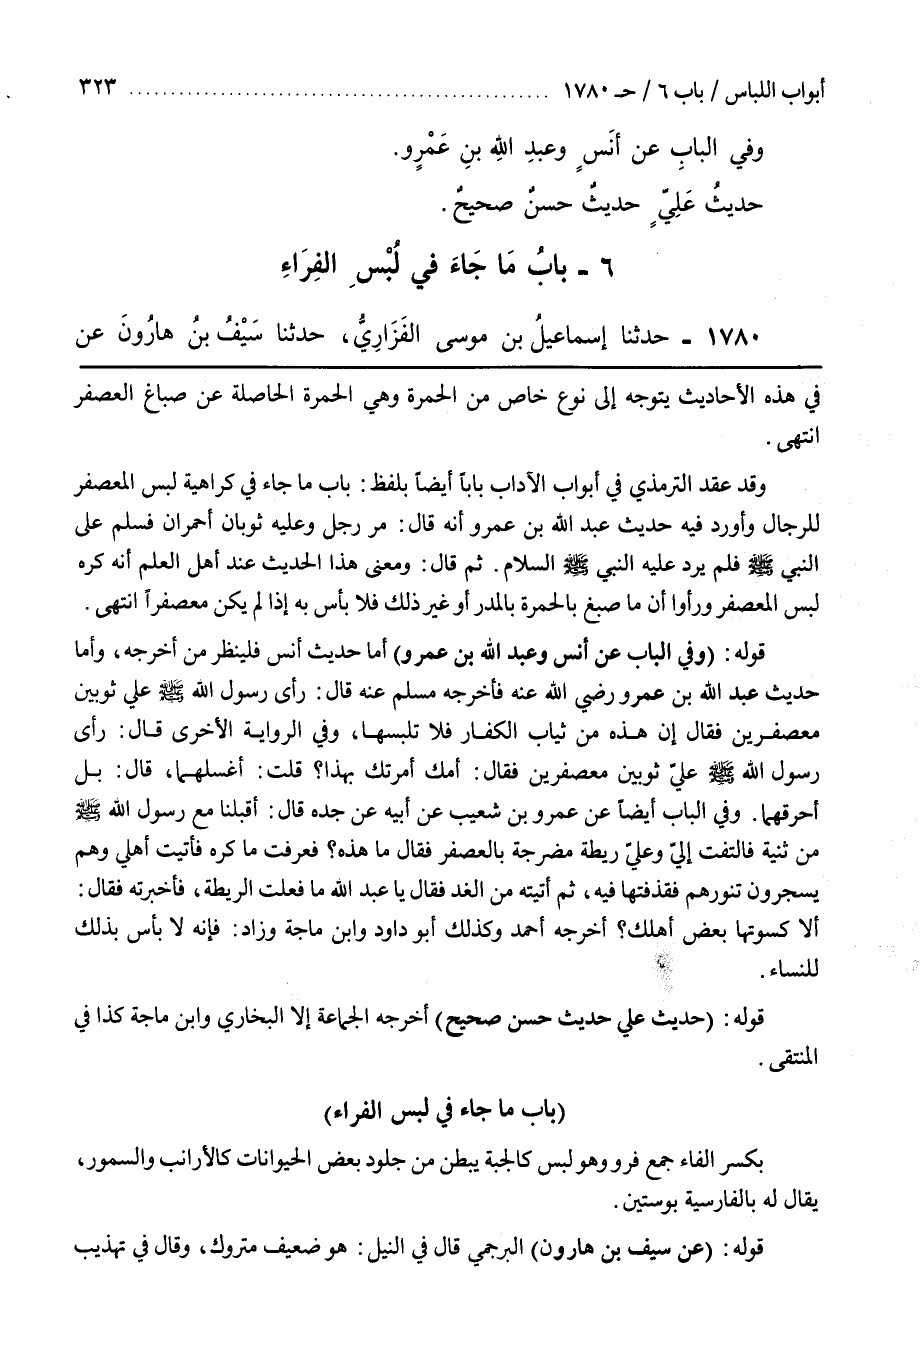 أبواب اللباس / باب ٦ / حـ ١٧٨٠ ........................................ ٣٢٣
وفي البابِ عن أنَسٍ وعبدِ اللهِ بنِ عَمْرٍو.
حديثُ عَلِيٍّ حديثٌ حسنٌ صحيحٌ.
٦ - بابُ مَا جَاءَ في لُبْسِ الفِرَاءِ
١٧٨٠ - حدثنا إسماعيلُ بن موسى الفَزَارِيُّ، حدثنا سَيْفُ بنُ هارُونَ عن
في هذه الأحاديث يتوجه إلى نوع خاص من الحمرة وهي الحمرة الحاصلة عن صباغ العصفر
انتهى.
وقد عقد الترمذي في أبواب الآداب باباً أيضاً بلفظ: باب ما جاء في كراهية لبس المعصفر
للرجال وأورد فيه حديث عبد الله بن عمرو أنه قال: مر رجل وعليه ثوبان أحمران فسلم على
النبي ﷺ فلم يرد عليه النبي ﷺ السلام. ثم قال: ومعنى هذا الحديث عند أهل العلم أنه كره
لبس المعصفر ورأوا أن ما صبغ بالحمرة بالمدر أو غير ذلك فلا بأس به إذا لم يكن معصفراً انتهى.
قوله: (وفي الباب عن أنس وعبد الله بن عمرو) أما حديث أنس فلينظر من أخرجه، وأما
حديث عبد الله بن عمرو رضي الله عنه فأخرجه مسلم عنه قال: رأى رسول الله ﷺ علي ثوبين
معصفرين فقال إن هذه من ثياب الكفار فلا تلبسها، وفي الرواية الأخرى قال: رأى
رسول الله ﷺ عليّ ثوبين معصفرين فقال: أمك أمرتك بهذا؟ قلت: أغسلهما، قال: بل
أحرقهما. وفي الباب أيضاً عن عمرو بن شعيب عن أبيه عن جده قال: أقبلنا مع رسول الله ﷺ
من ثنية فالتفت إليّ وعليّ ريطة مضرجة بالعصفر فقال ما هذه؟ فعرفت ما كره فأتيت أهلي وهم
يسجرون تنورهم فقذفتها فيه، ثم أتيته من الغد فقال يا عبد الله ما فعلت الريطة، فأخبرته فقال:
ألا كسوتها بعض أهلك؟ أخرجه أحمد وكذلك أبو داود وابن ماجة وزاد: فإنه لا بأس بذلك
للنساء.
قوله: (حديث علي حديث حسن صحيح) أخرجه الجماعة إلا البخاري وابن ماجة كذا في
المنتقى.
(باب ما جاء في لبس الفراء)
بكسر الفاء جمع فرو وهو لبس كالجبة يبطن من جلود بعض الحيوانات كالأرانب والسمور،
يقال له بالفارسية بوستين.
قوله: (عن سيف بن هارون) البرجمي قال في النيل: هو ضعيف متروك، وقال في تهذيب